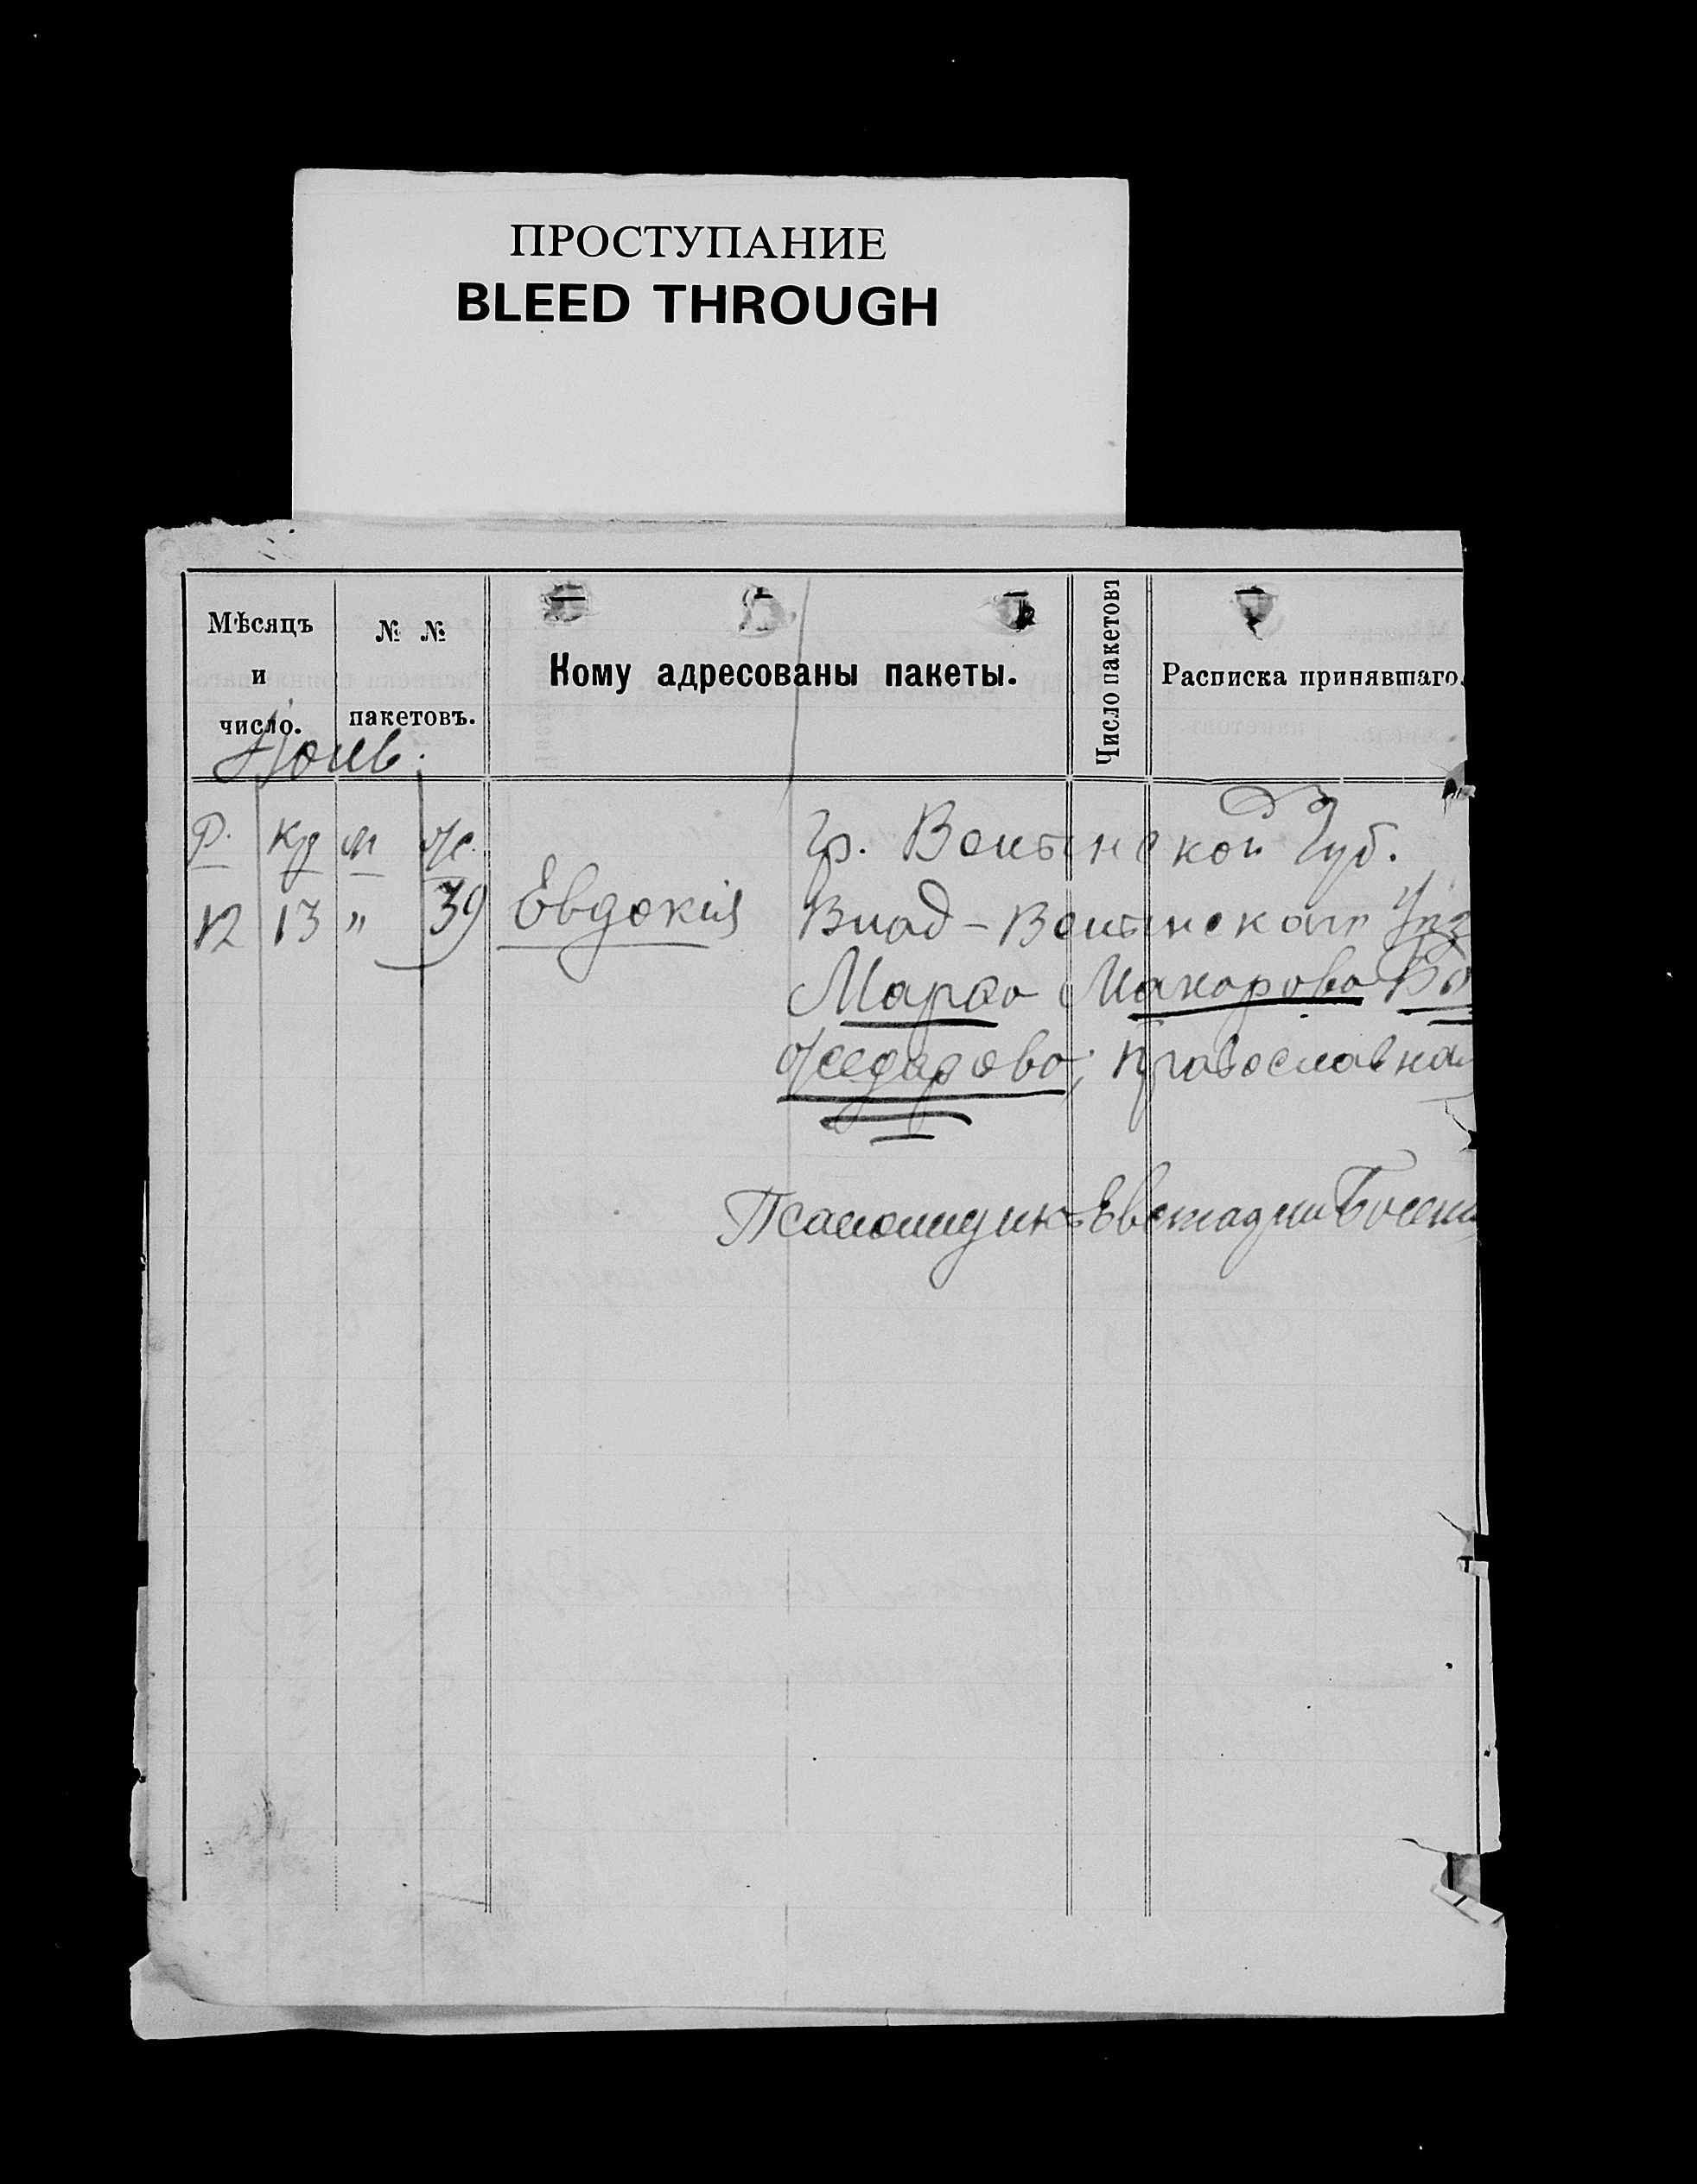 ПРОСТУПАНИЕ
BLEED THROUGH
Мѣсяцъ
и
число.
№ №
пакетовъ.
Кому адресованы пакеты.
Число пакетовъ
Расписка принявшаго.
Р. Кр м ж.
12 13 " 39 Евдокія
гр. Волынской Губ.
Влад-Волынскаго
Марѳа Макарова
Ѳедорова; православная
Псаломщикъ Евстафій